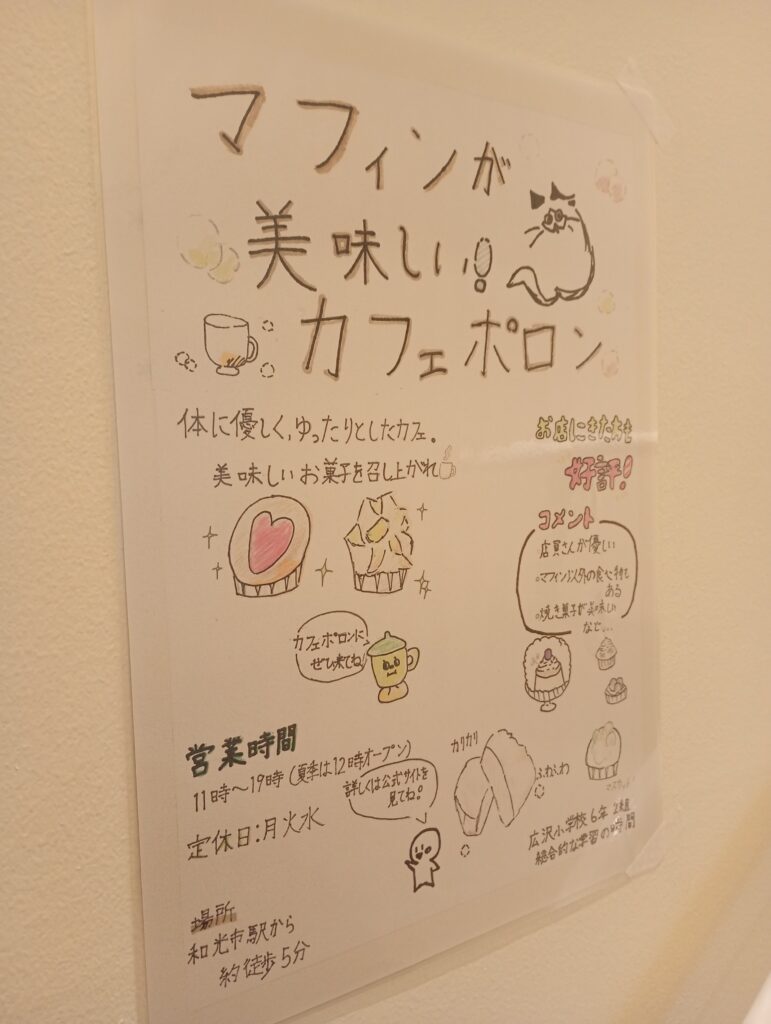 マフィンが
美味しい!
カフェポロン
体に優しく、ゆったりとしたカフェ。
美味しいお菓子を召し上がれ
お店にきた
好評!
コメント
店員さんが優しい
・マフィン以外の食べ物も
ある
・焼き菓子が美味しい
など...
カフェポロンに
ぜひ来てね!
営業時間
11時～19時(夏季は12時オープン)
定休日:月火水
詳しくは公式サイトを
見てね。
カリカリ
ふわふわ
広沢小学校6年2組
総合的な学習の時間
場所
和光市駅から
約徒歩5分